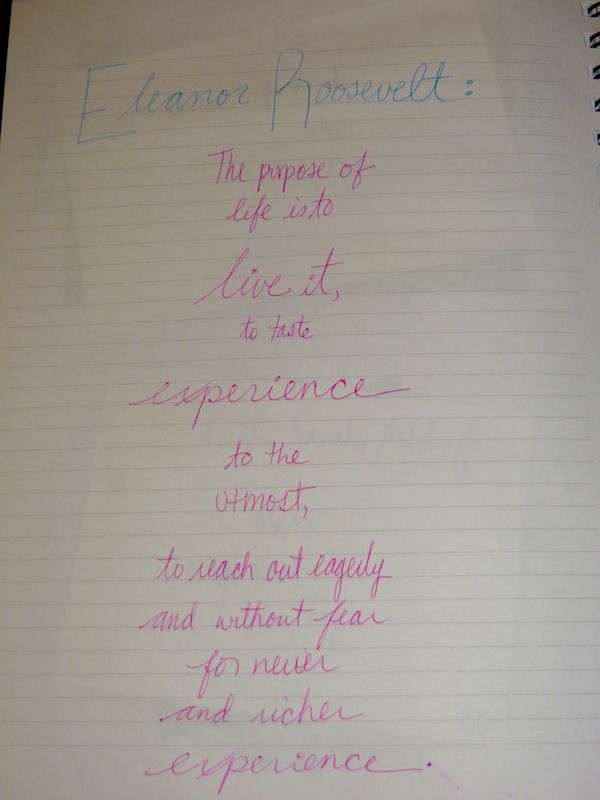 Eleanor Roosevelt:
The purpose of
life is to
live it,
to taste
experience
to the
utmost,
to reach out eagerly
and without fear
for newer
and richer
experience.